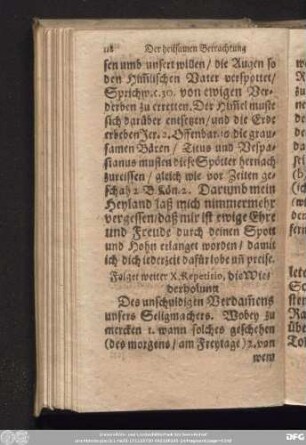 118 Der heilsamen Betrachtung
sen umb unsert willen / die Augen so
den Him̃lischen Vater verspottet /
Sprichw. c. 30. von ewigen Ver-
derben zu erretten. Der Him̃el muste
sich darüber entsetzen / und die Erde
erbeben Jer. 2. Offenbar. 10. die grau-
samen Bären / Titus und Vespa-
sianus musten diese Spötter hernach
zureissen / gleich wie vor Zeiten ge-
schah 2 B. Kön. 2. Darumb mein
Heyland laß mich nimmermehr
vergessen / daß mir ist ewige Ehre
und Freude durch deinen Spott
und Hohn erlanget worden / damit
ich dich jederzeit dafür lobe uñ preise.
Folget weiter X. Repetitio, die Wie-
derholung
Des unschuldigen Verdam̃ens
unsers Seligmachers. Wobey zu
mercken 1. wann solches geschehen
(des morgens / am Freytage) 2. von
wem